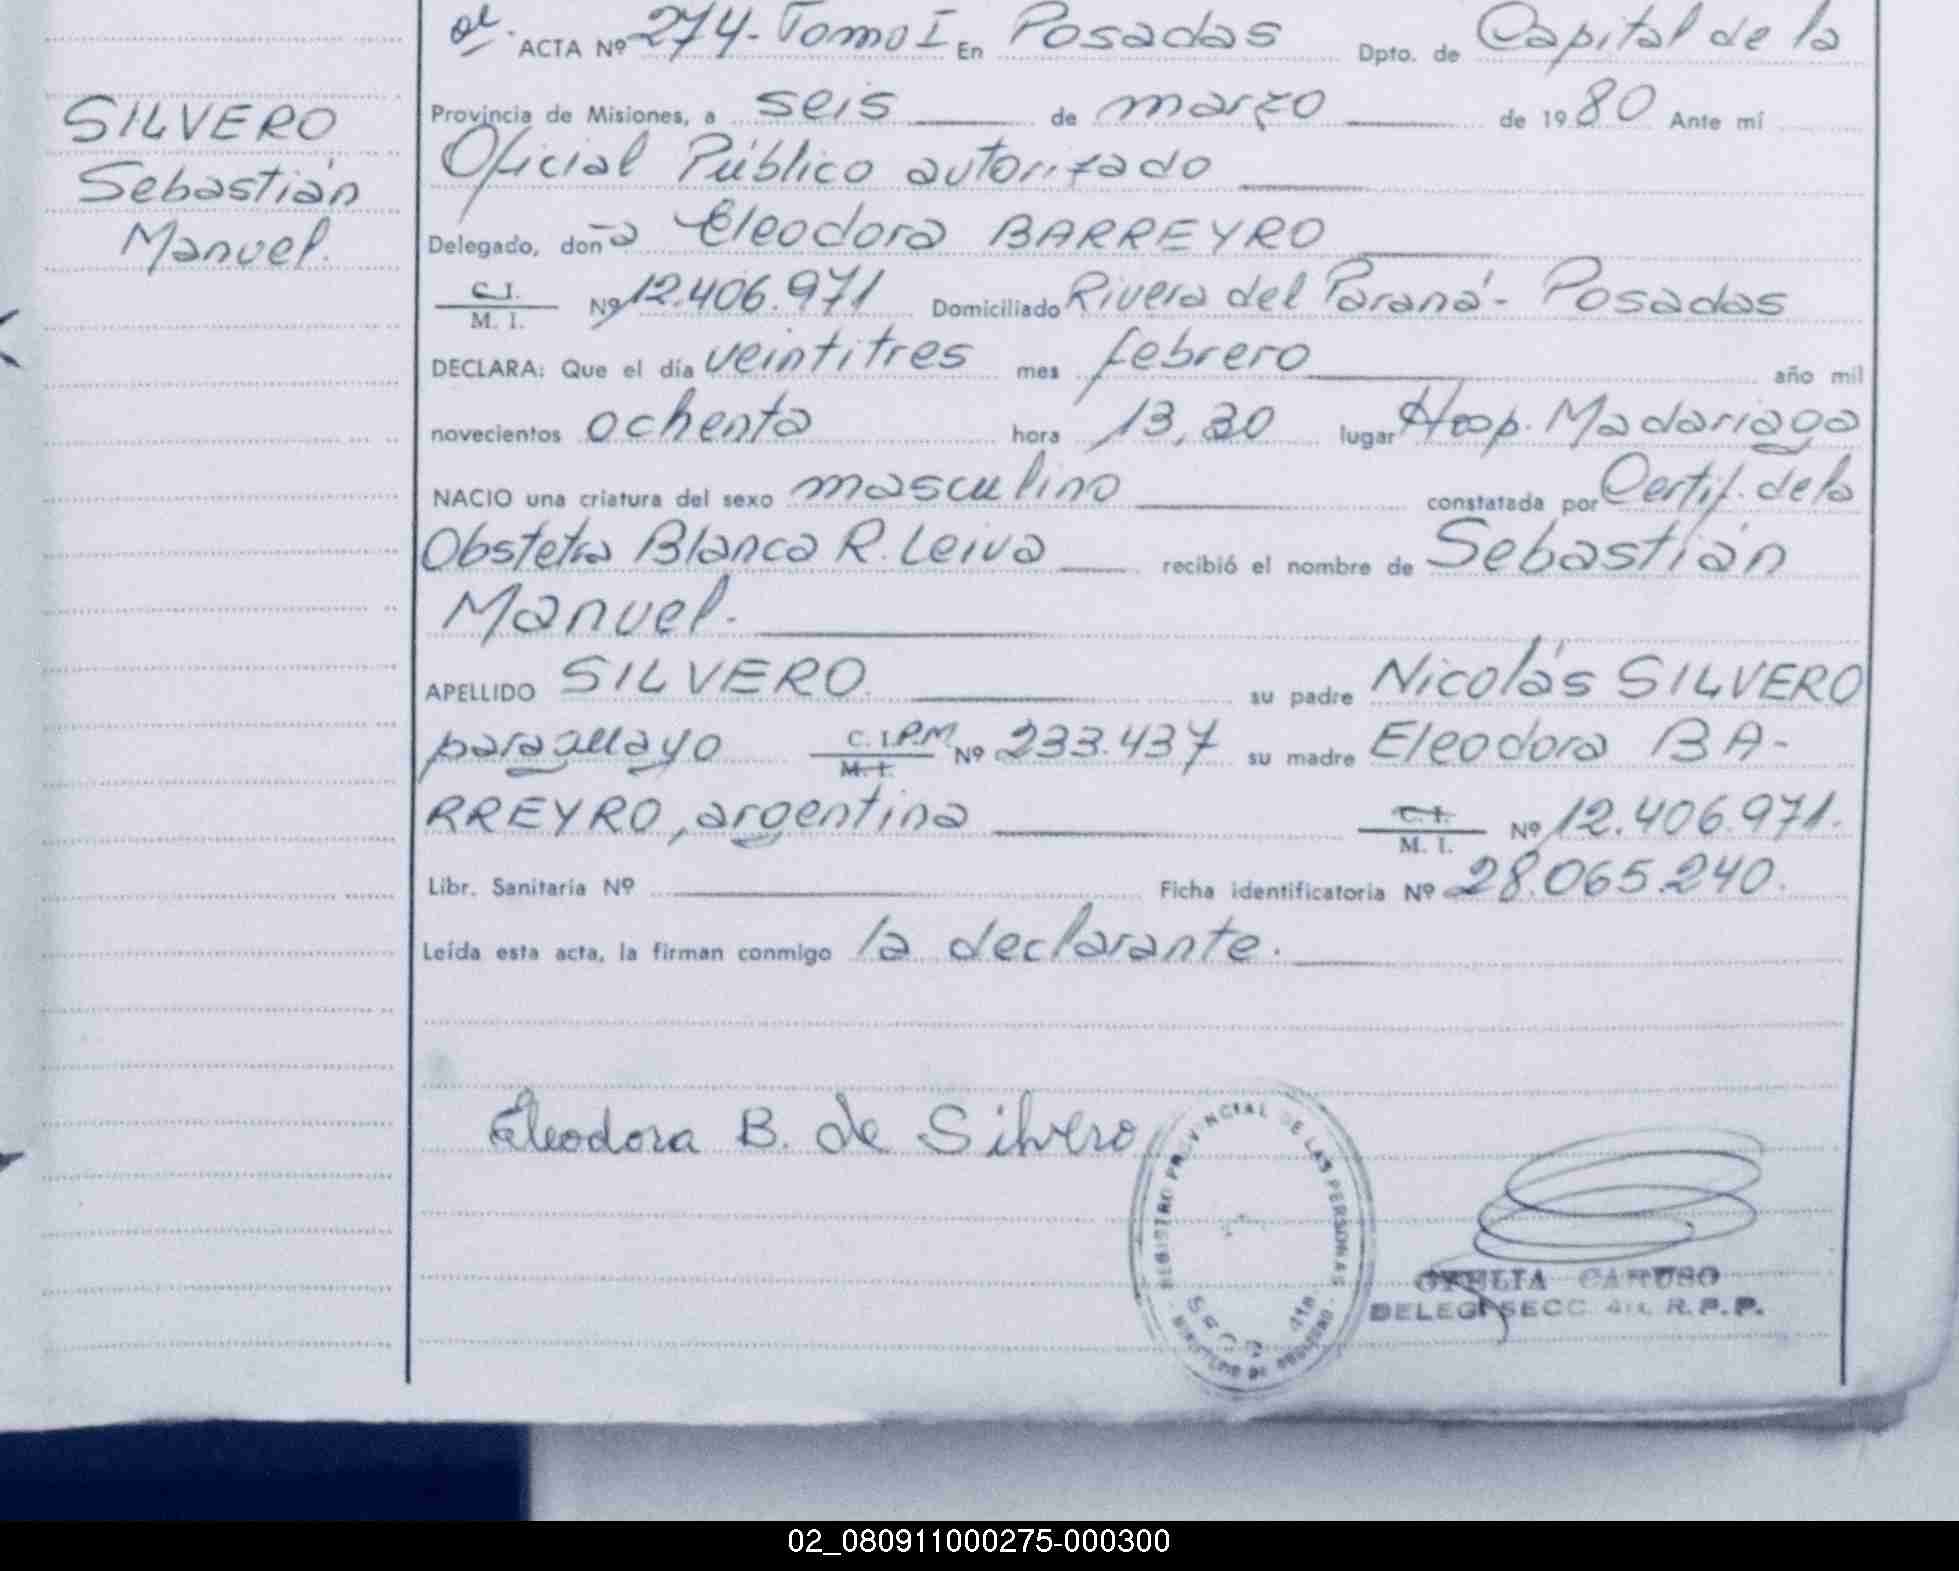 SILVERO
Sebastián
Manuel.
ACTA Nº 274- Tomo I En Posadas Dpto. de Capital de la
Provincia de Misiones, a seis de marzo de 1980 Ante mí
Oficial Público autorizado
Delegado, don-a Eleodora BARREYRO
C.I. M.I. Nº 12.406.971 Domiciliado Rivera del Paraná- Posadas
DECLARA: Que el día veintitres mes febrero año mil
novecientos ochenta hora 13,30 lugar Hosp. Madariaga
NACIO una criatura del sexo masculino constatada por Certif. de la
Obstetra Blanca R. Leiva recibió el nombre de Sebastián
Manuel.
APELLIDO SILVERO. su padre Nicolás SILVERO
paraguayo C.I.P.M M.I. Nº 233.437 su madre Eleodora BA-
RREYRO, argentina C.I. M.I. Nº 12.406.971.
Libr. Sanitaria Nº Ficha identificatoria Nº 28.065.240.
Leída esta acta, la firman conmigo la declarante.
Eleodora B. de Silvero
REGISTRO PROVINCIAL DE LAS PERSONAS
SECC. 4ta.
MINISTERIO DE GOBIERNO
OFELIA CARUSO
DELEG. SECC. 4ta. R.P.P.
02_080911000275-000300